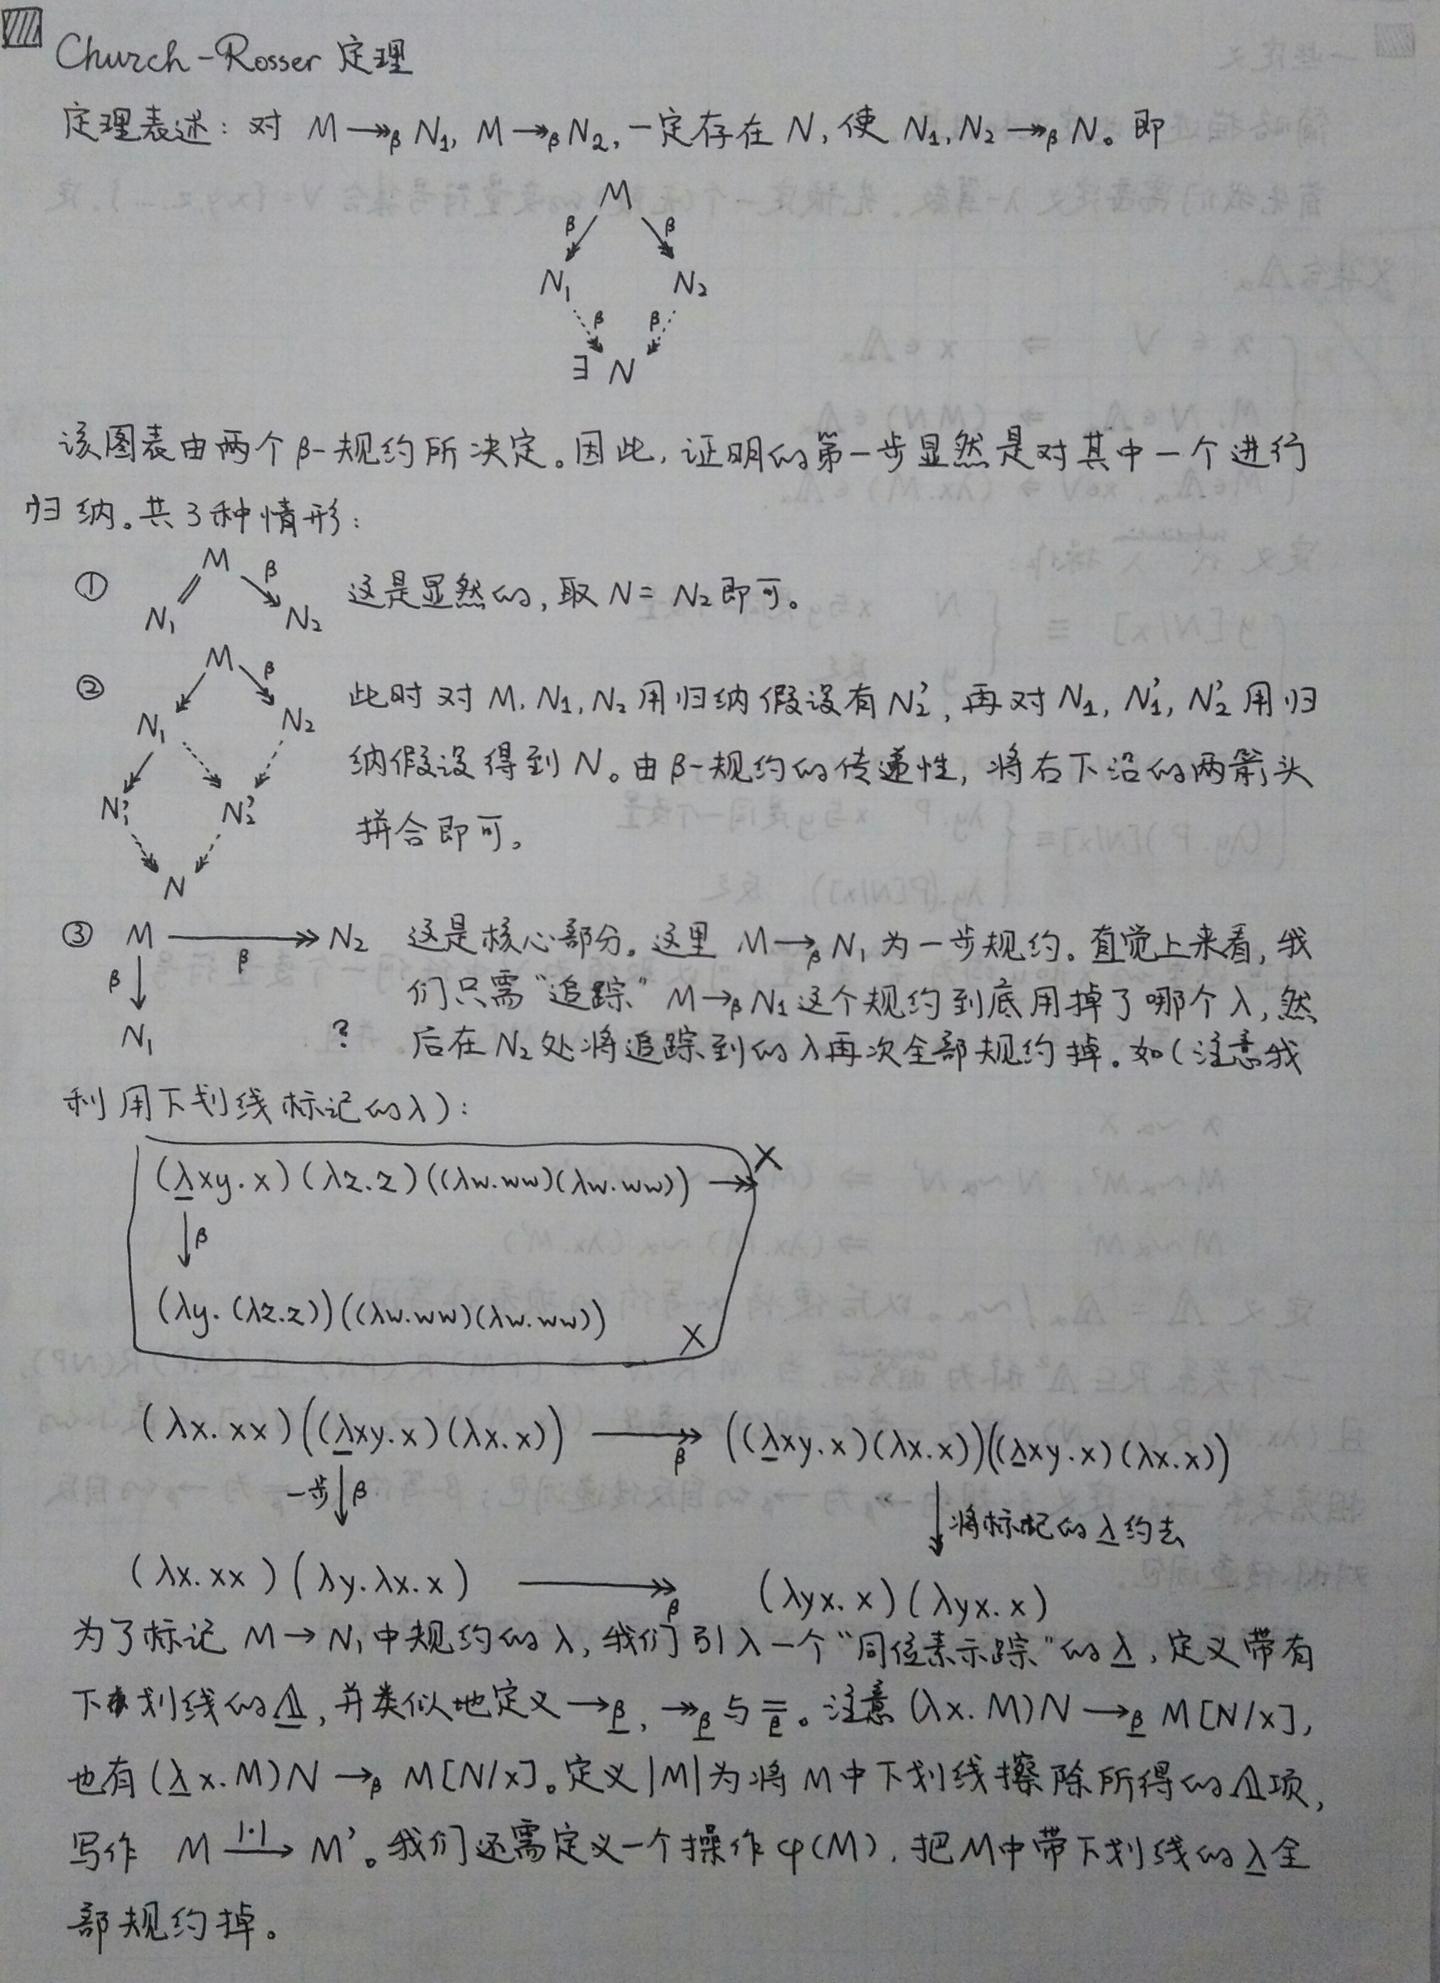 Church-Rosser 定理
定理表述：对 M ↠β N₁, M ↠β N₂, 一定存在 N, 使 N₁, N₂ ↠β N。即
M
β β
N₁ N₂
β β
∃ N
该图表由两个 β-规约所决定。因此，证明的第一步显然是对其中一个进行
归纳。共3种情形：
① M β N₁ N₂ 这是显然的，取 N = N₂ 即可。
② M β
N₁ N₂ 此时对 M, N₁, N₂ 用归纳假设有 N₂', 再对 N₁, N₁', N₂' 用归
纳假设得到 N。由 β-规约的传递性，将右下沿的两箭头
N₁' N₂' 拼合即可。
N
③ M ↠β N₂ 这是核心部分。这里 M →β N₁ 为一步规约。直觉上来看，我
β↓ 们只需“追踪” M →β N₁ 这个规约到底用掉了哪个 λ, 然
N₁ ? 后在 N₂ 处将追踪到的 λ 再次全部规约掉。如（注意我
利用下划线标记的 λ）：
(λ̲xy.x)(λz.z)((λw.ww)(λw.ww)) ↠ X
↓β
(λy.(λz.z))((λw.ww)(λw.ww)) X
(λx.xx)((λ̲xy.x)(λx.x)) ↠β ((λ̲xy.x)(λx.x))((λ̲xy.x)(λx.x))
一步↓β ↓将标记的 λ̲ 约去
(λx.xx)(λy.λx.x) ↠β (λyx.x)(λyx.x)
为了标记 M → N₁ 中规约的 λ, 我们引入一个“同位素示踪”的 λ̲, 定义带有
下划线的 Λ̲, 并类似地定义 →β̲, ↠β̲ 与 =β̲。注意 (λx.M)N →β̲ M[N/x],
也有 (λ̲x.M)N →β̲ M[N/x]。定义 |M| 为将 M 中下划线擦除所得的 Λ 项,
写作 M —|·|→ M'。我们还需定义一个操作 φ(M), 把 M 中带下划线的 λ̲ 全
部规约掉。